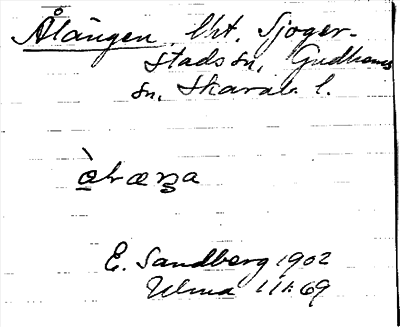 Ålängen, Vht. Sjoger-
stads sn, Gudhems
sn, Skarab. l.
E. Sandberg 1902
Ulma 111:69